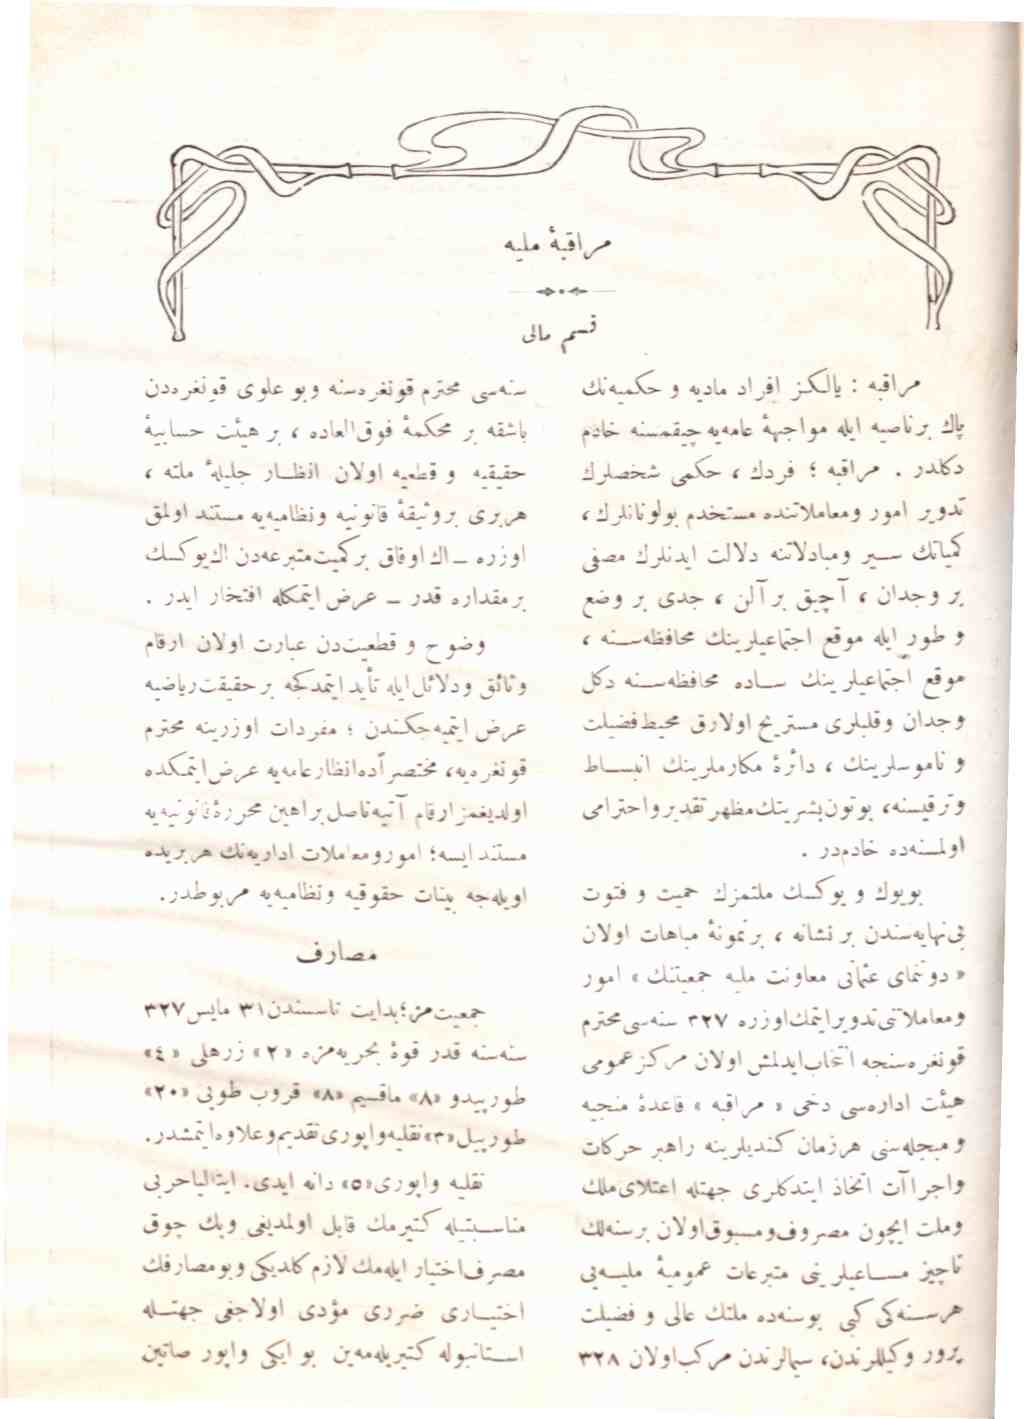 مراقبهٔ ملیه
قسم مالی
مراقبه : یالکز افراد مادیه و حکمیه‌نك
پاك برناصیه ایله مواجههٔ عامه‌یه چیقمسنه خادم
دکلدر . مراقبه ؛ فردك ، حکمی شخصلرك
تدویر امور ومعاملاتنده مستخدم بولونانلرك ،
کمیاتك سیر ومبادلاتنه دلالت ایدنلرك مصفی
بر وجدان ، آچیق بر آلن ، جدی بر وضع
و طور ایله موقع اجتماعیلرینك محافظه‌سنه ،
موقع اجتماعیلرینك ساده محافظه‌سنه دکل
وجدان وقلبلری مستریح اولارق محیط فضیلت
و ناموسلرینك ، دائرهٔ مکارملرینك انبساط
وترقیسنه، بوتون بشریتك مظهر تقدیر و احترامی
اولمسنه‌ده خادمدر .
بویوك و یوکسك ملتمزك حمیت و فتوت
بی‌نهایه‌سندن بر نشانه ، برنمونهٔ مباهات اولان
« دوننمای عثمانی معاونت ملیه جمعیتنك » امور
ومعاملاتنی تدویر ایتمك اوزره ۳۲۷ سنه‌سی محترم
قونغره‌سنجه انتخاب ایدلمش اولان مرکز عمومی
هیئت اداره‌سی دخی « مراقبه » قاعدهٔ منجیه
و مبجله‌سنی هرزمان کندیلرینه راهبر حرکات
واجراآت اتخاذ ایتدکلری جهتله اعتلای ملك
وملت ایچون مصروف و مسبوق اولان برسنه‌لك
ناچیز مساعیلرینی متبرعات عمومیهٔ ملیه‌یی
هرسنه‌کی کبی بوسنه‌ده ملتك عالی و فضیلت
پرور وکیللرندن، سیمالرندن مرکب اولان ۳۲۸
سنه‌سی محترم قونغره‌سنه وبو علوی قونغره‌دن
باشقه بر محکمهٔ فوق‌العاده ، بر هیئت حسابیهٔ
حقیقیه و قطعیه اولان انظار جلیلهٔ ملته ،
هربری بروثیقهٔ قانونیه ونظامیه‌یه مستند اولمق
اوزره — اك اوفاق برکمیت متبرعه‌دن اك یوکسك
برمقداره قدر — عرض ایتمکله افتخار ایدر .
وضوح و قطعیت‌دن عبارت اولان ارقام
وثائق ودلائل ایله تأیید ایتمدکجه برحقیقت ریاضیه
عرض ایتمیه‌جکندن ؛ مفردات اوزرینه محترم
قونغره‌یه، مختصراً ده انظار عامه‌یه عرض ایتمکده
اولدیغمز ارقام آتیه ناصل براهین محررهٔ قانونیه‌یه
مستند ایسه؛ امور ومعاملات اداریه‌نك هربریده
اویله‌جه بینات حقوقیه ونظامیه‌یه مربوطدر.
مصارف
جمعیت‌مز؛بدایت تأسسندن ۳۱ مایس ۳۲۷
سنه‌سنه قدر قوهٔ بحریه‌مزه «۲» زرهلی «٤»
طورپیدو «۸» ماقسیم «۸» قروب طوپی «۲۰»
طورپیل«۳»نقلیه واپوری تقدیم وعلاوه ایتمشدر.
نقلیه واپوری«۵» دانه ایدی. ایتالیا حربی
مناسبتیله کتیرمك قابل اولمدیغی وپك چوق
مصرف اختیار ایله‌مك لازم کلدیکی وبو مصارفك
اختیاری ضرری مؤدی اولاجغی جهتله
استانبوله کتیریله‌مه‌ین بو ایکی واپور صاتین